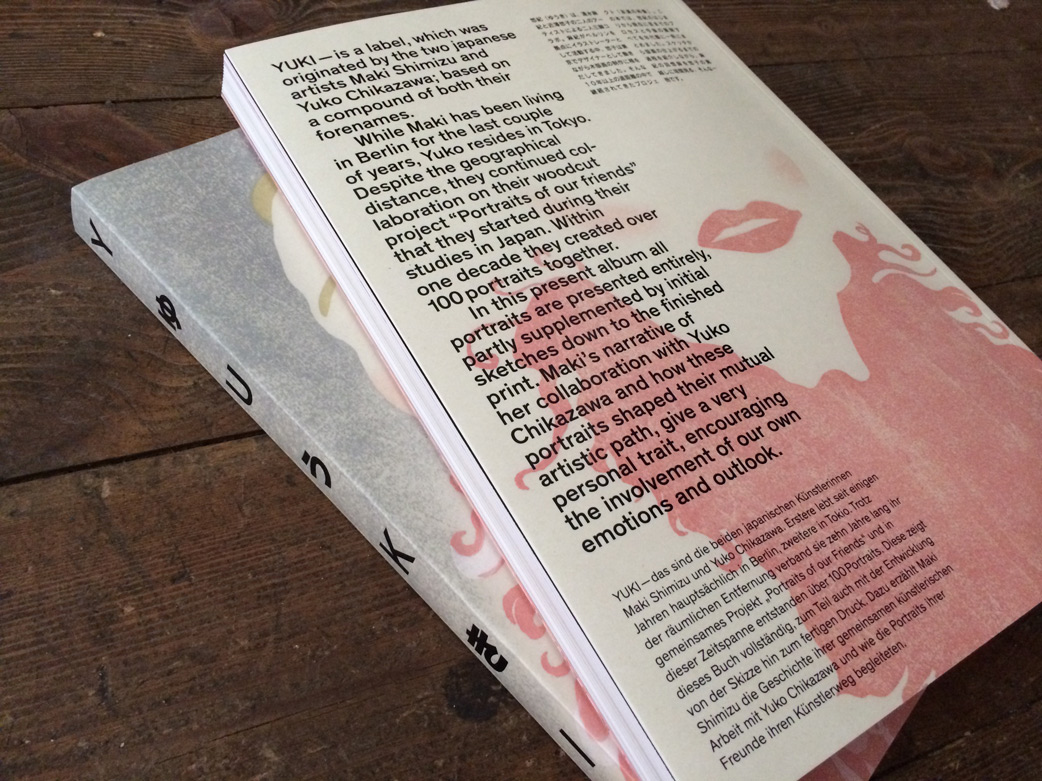 YUKI — is a label, which was
originated by the two japanese
artists Maki Shimizu and
Yuko Chikazawa; based on
a compound of both their
forenames.
While Maki has been living
in Berlin for the last couple
of years, Yuko resides in Tokyo.
Despite the geographical
distance, they continued col-
laboration on their woodcut
project “Portraits of our friends”
that they started during their
studies in Japan. Within
one decade they created over
100 portraits together.
In this present album all
portraits are presented entirely,
partly supplemented by initial
sketches down to the finished
print. Maki’s narrative of
her collaboration with Yuko
Chikazawa and how these
portraits shaped their mutual
artistic path, give a very
personal trait, encouraging
the involvement of our own
emotions and outlook.
YUKI — das sind die beiden japanischen Künstlerinnen
Maki Shimizu und Yuko Chikazawa. Erstere lebt seit einigen
Jahren hauptsächlich in Berlin, zweitere in Tokio. Trotz
der räumlichen Entfernung verband sie zehn Jahre lang ihr
gemeinsames Projekt „Portraits of our Friends“ und in
dieser Zeitspanne entstanden über 100 Portraits. Diese zeigt
dieses Buch vollständig, zum Teil auch mit der Entwicklung
von der Skizze hin zum fertigen Druck. Dazu erzählt Maki
Shimizu die Geschichte ihrer gemeinsamen künstlerischen
Arbeit mit Yuko Chikazawa und wie die Portraits ihrer
Freunde ihren Künstlerweg begleiteten.
Y ゆ U う K き I